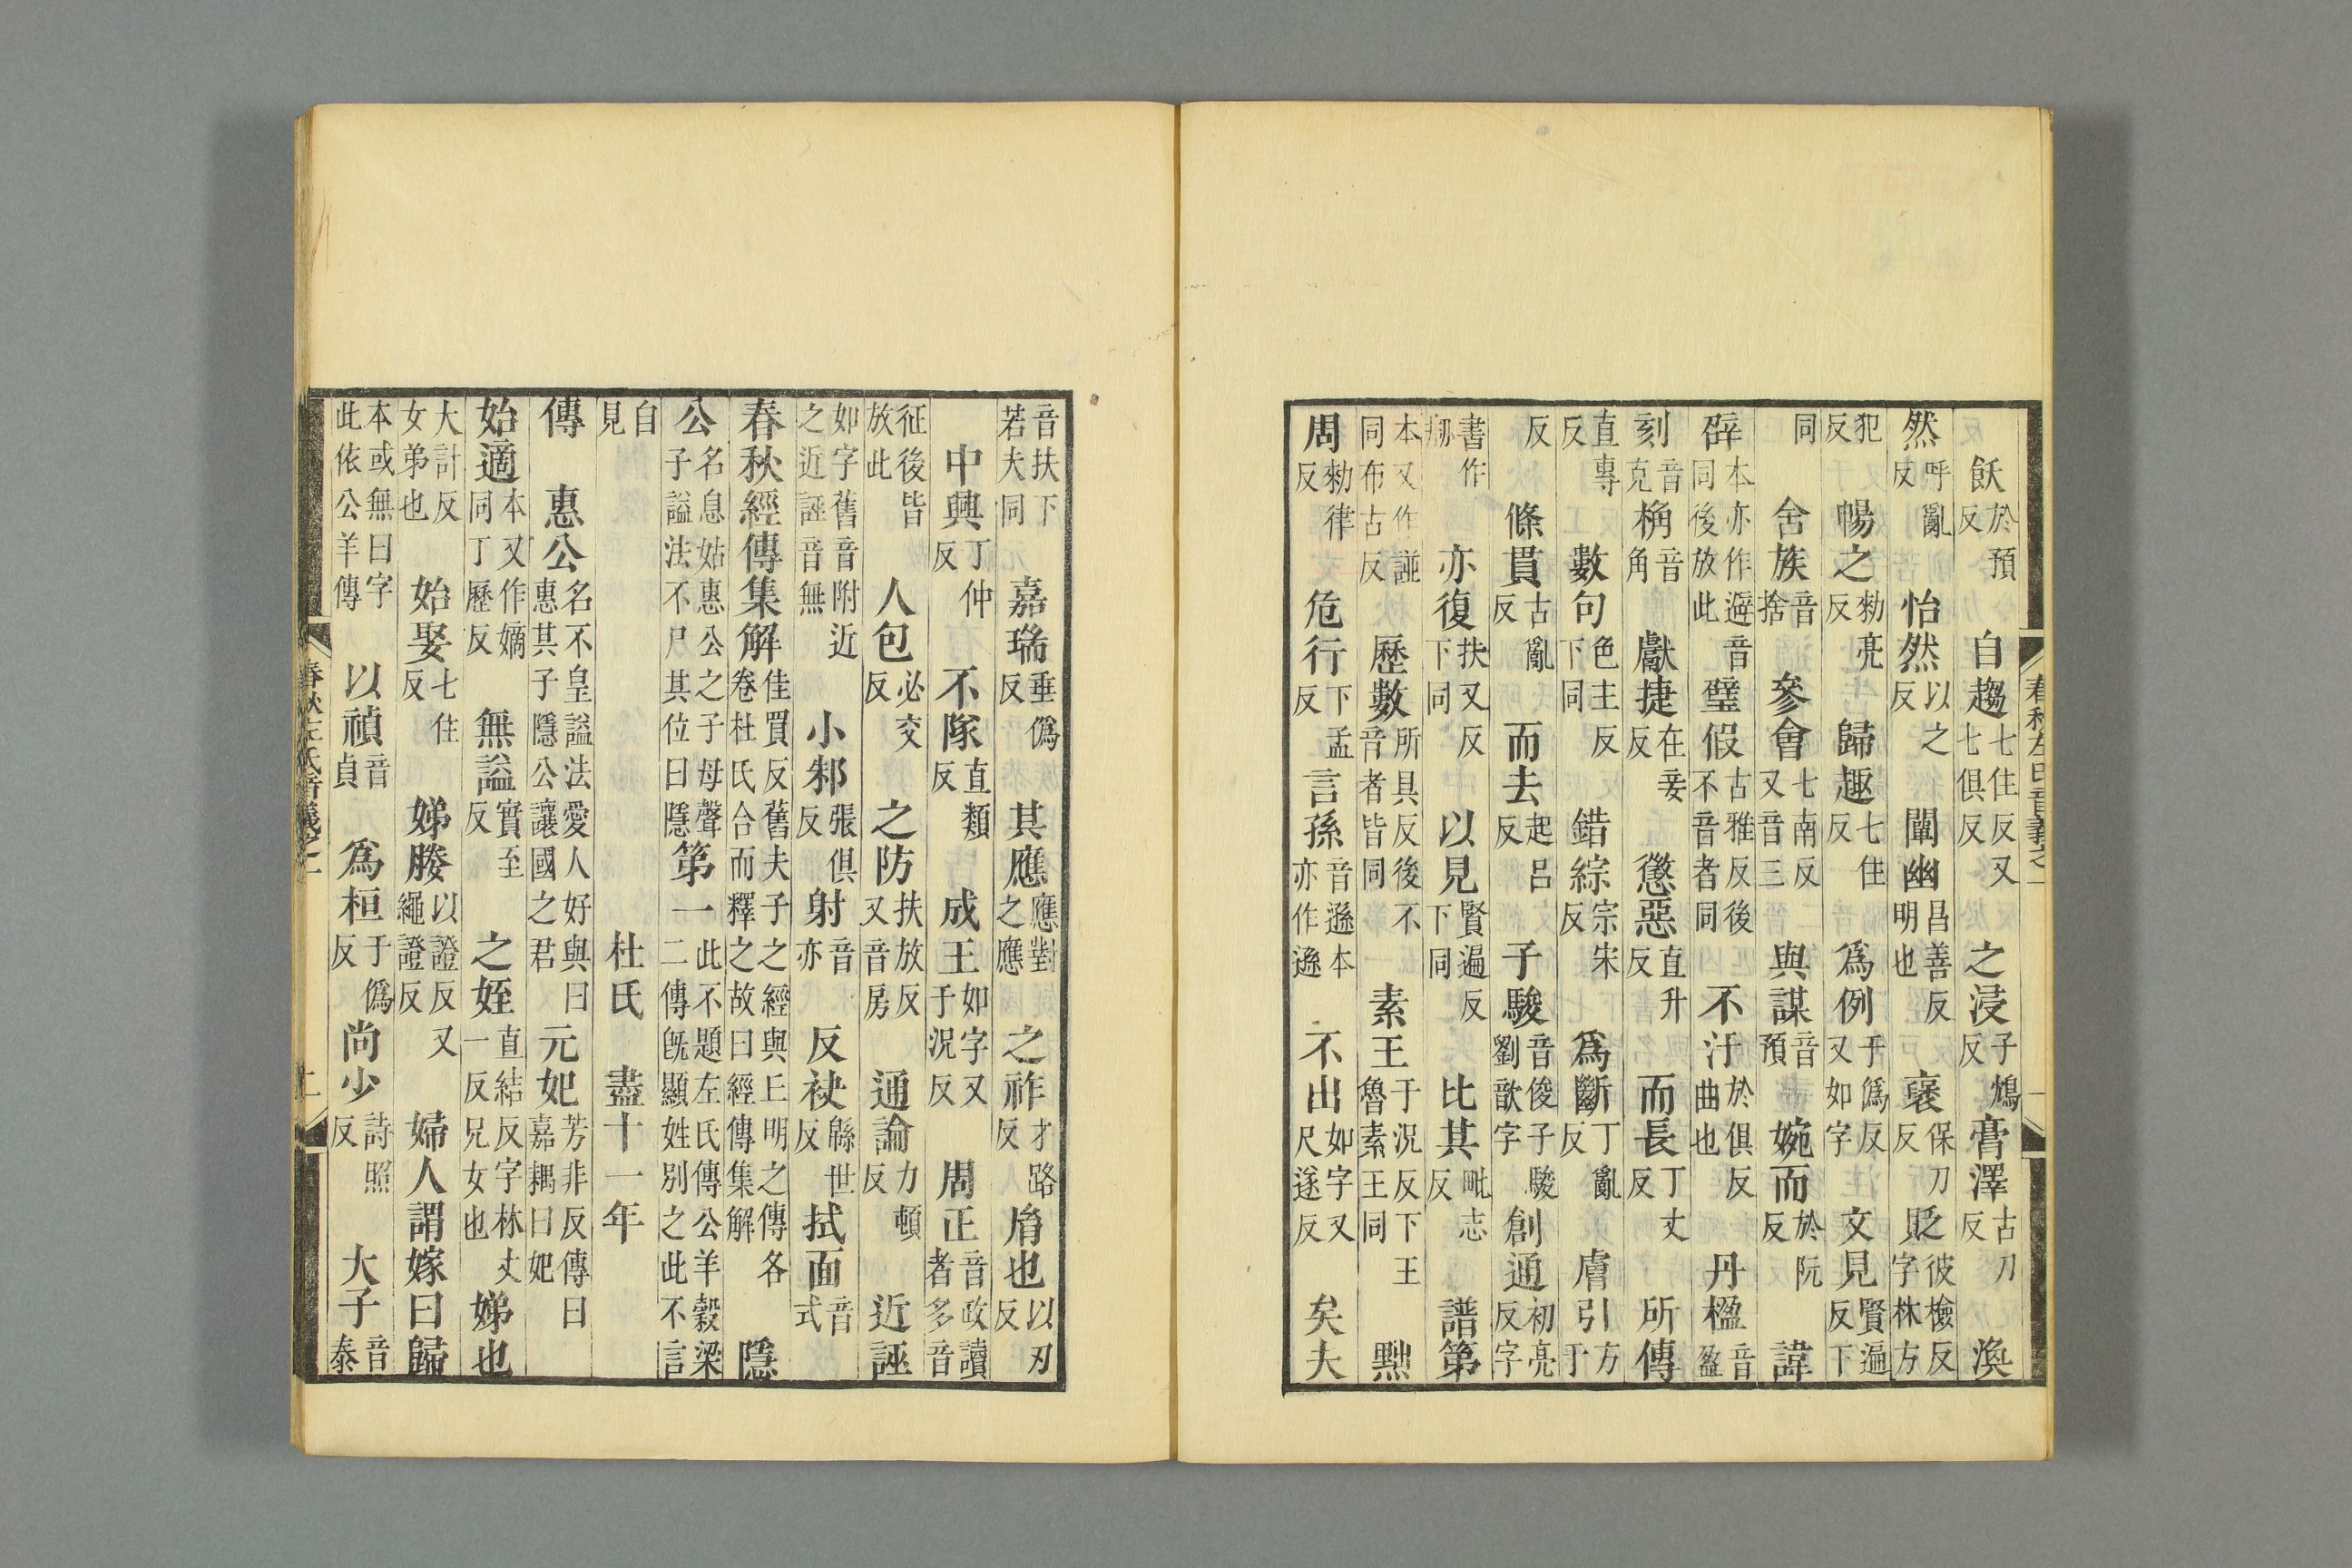 飫於預反　自趨七住反又七俱反　之浸子鴆反　膏澤古刀反　渙
然呼亂反　怡然以之反　闡幽昌善反明也　褒保刀反　貶彼檢反字林方
犯反　暢之勑亮反　歸趣七住反　為例于僞反又如字　文見賢遍反下
同　舍族音捨　參會七南反又音三　與謀音預　婉而於阮反　諱
辟本亦作避音同後放此　璧假古雅反後不音者同　不汙於俱反曲也　丹楹音盈
刻音克　桷音角　獻捷在妾反　懲惡直升反　而長丁丈反　所傳
直專反　數句色主反下同　錯綜宗宋反　為斷丁亂反　膚引方于
反　條貫古亂反　而去起呂反　子駿音俊子駿劉歆字　創通初亮反字
書作刱　亦復扶又反下同　以見賢遍反下同　比其毗志反　譜第
本又作諩同布古反　歷數所具反後不音者皆同　素王于況反下王魯素王同　黜
周勑律反　危行下孟反　言孫音遜本亦作遜　不出如字又尺遂反　矣夫
春秋左氏音義之一　一
音扶下若夫同　嘉瑞垂僞反　其應應對之應　之祚才路反　胤也以刃反
中興丁仲反　不隊直類反　成王如字又于況反　周正音政讀者多音
征後皆放此　人包必交反　之防扶放反又音房　通論力頓反　近誣
如字舊音附近之近誣音無　小邾張俱反　射音亦　反袂緜世反　拭面音式
春秋經傳集解佳買反舊夫子之經與丘明之傳各卷杜氏合而釋之故曰經傳集解　隱
公名息姑惠公之子母聲子謚法不尸其位曰隱　第一此不題左氏傳公羊穀梁二傳旣顯姓別之此不言
自見　杜氏　盡十一年
傳　惠公名不皇謚法愛人好與曰惠其子隱公讓國之君　元妃芳非反傳曰嘉耦曰妃
始適本又作嫡同丁歷反　無謚實至反　之姪直結反字林丈一反兄女也　娣也
大計反女弟也　始娶七住反　娣媵以證反又繩證反　婦人謂嫁曰歸
本或無曰字此依公羊傳　以禎音貞　為桓于僞反　尚少詩照反　大子音泰
春秋左氏音義之一　二